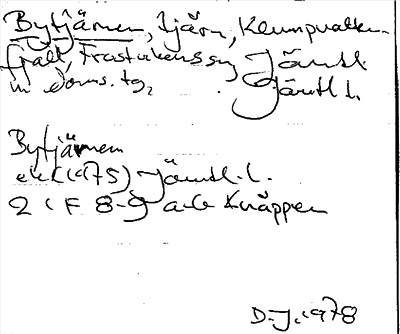 Bytjärnen, tjärn, Klumpvatten-
fjäll, Frostvikens sn, Jämtl.
n doms. tg, Jämtl l.
Bytjärnen
ek (1975) Jämtl. l.
2 (F 8-9 a-c Knäppen
D.J. 1978